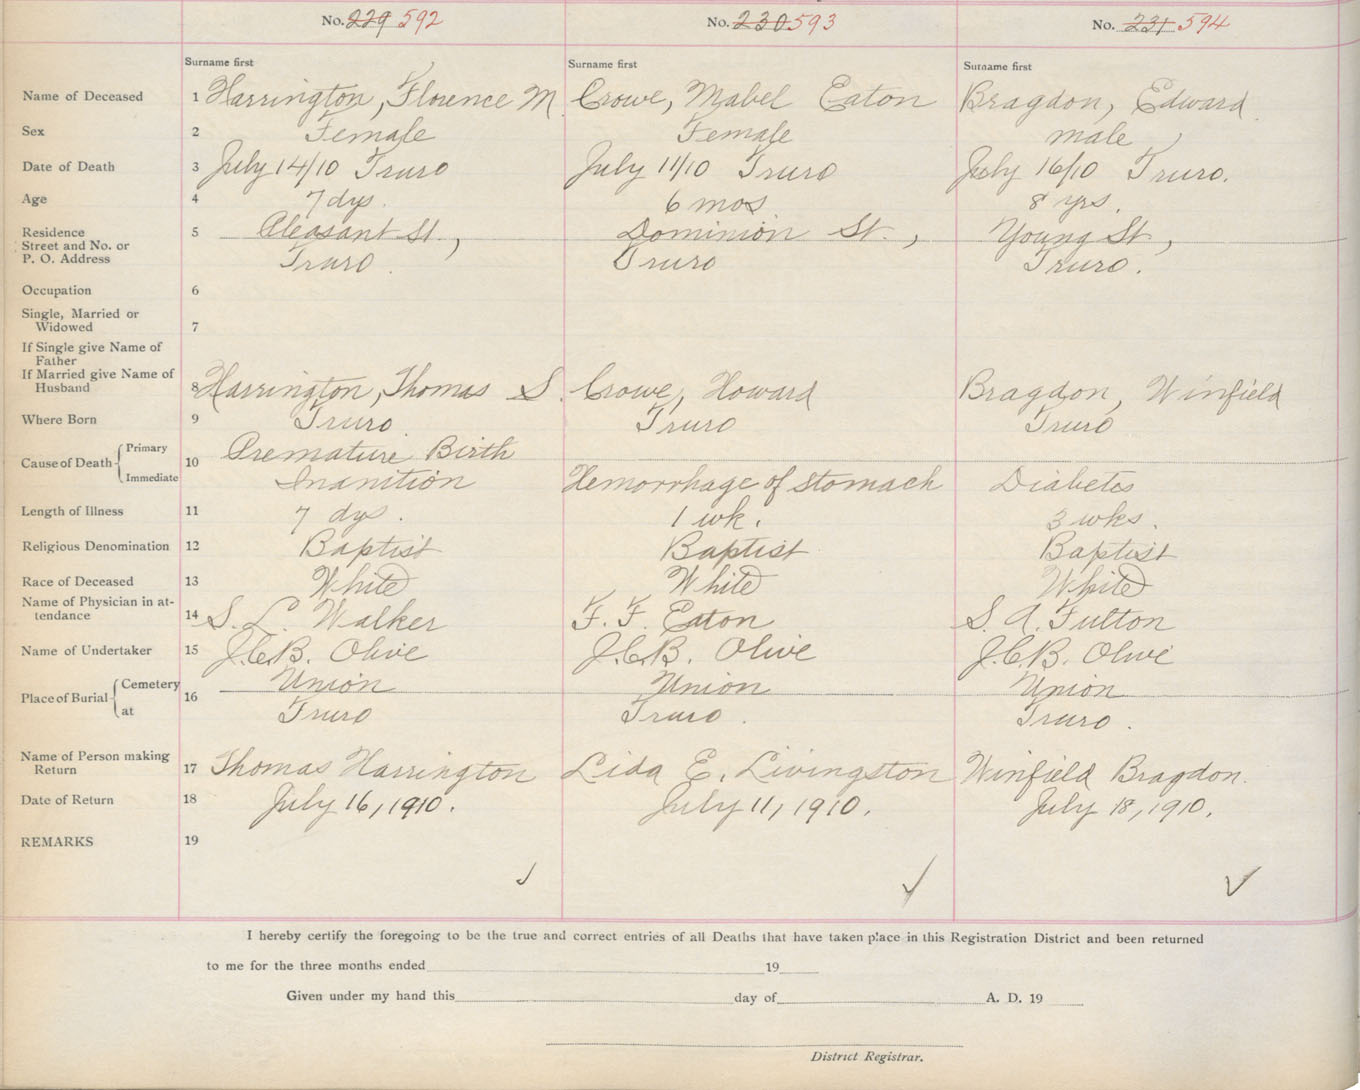 No. 229 592 No. 230 593 No. 231 594
Surname first Surname first Surname first
Name of Deceased 1 Harrington, Florence M Crowe, Mabel Eaton Bragdon, Edward
Sex 2 Female Female male
Date of Death 3 July 14/10 Truro July 11/10 Truro July 16/10 Truro.
Age 4 7 dys. 6 mos 8 yrs.
Residence 5 Pleasant St., Dominion St., Young St,
Street and No. or
P. O. Address Truro. Truro Truro.
Occupation 6
Single, Married or
Widowed 7
If Single give Name of
Father
If Married give Name of
Husband 8 Harrington, Thomas S. Crowe, Howard Bragdon, Winfield
Where Born 9 Truro Truro Truro
Cause of Death Primary 10 Premature Birth
Immediate Inanition Hemorrhage of stomach Diabetes
Length of Illness 11 7 dys. 1 wk. 3 wks.
Religious Denomination 12 Baptist Baptist Baptist
Race of Deceased 13 White White White
Name of Physician in at-
tendance 14 S. L. Walker F. F. Eaton S. A. Fulton
Name of Undertaker 15 J.C.B. Olive J.C.B. Olive J.C.B. Olive
Place of Burial Cemetery 16 Union Union Union
at Truro Truro. Truro.
Name of Person making
Return 17 Thomas Harrington Lida E. Livingston Winfield Bragdon.
Date of Return 18 July 16, 1910. July 11, 1910. July 18, 1910.
REMARKS 19
I hereby certify the foregoing to be the true and correct entries of all Deaths that have taken place in this Registration District and been returned
to me for the three months ended 19
Given under my hand this day of A. D. 19
District Registrar.